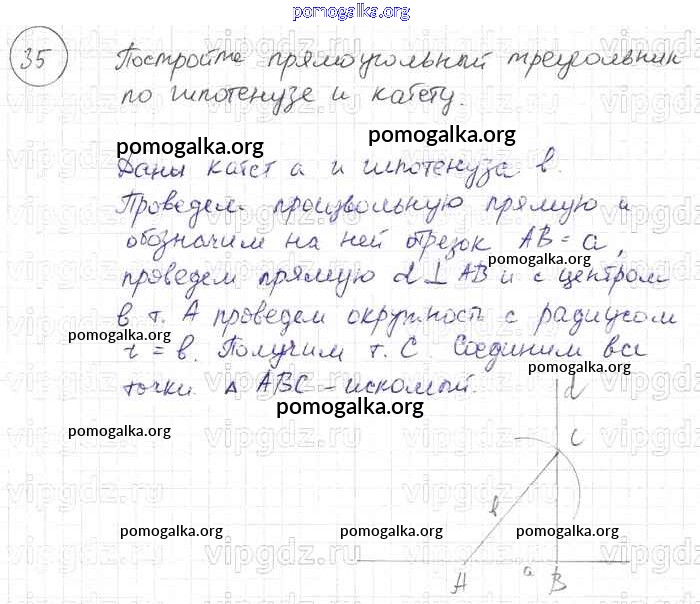 pomogalka.org
35 Постройте прямоугольный треугольник
по гипотенузе и катету.
pomogalka.org
pomogalka.org
Даны катет a и гипотенуза b.
Проведем произвольную прямую и
обозначим на ней отрезок AB = a,
pomogalka.org
проведем прямую d ⊥ AB и с центром
в т. A проведем окружность с радиусом
pomogalka.org
r = b. Получим т. C. Соединим все
pomogalka.org
точки △ ABC - искомый.
pomogalka.org
d
pomogalka.org
C
b
pomogalka.org
pomogalka.org
pomogalka.org
A a B
vipgdz.ru